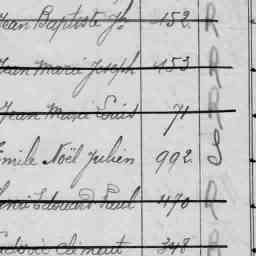 Jean Baptiste Jh 152 R
Jean Marie Joseph 453 R
Jean Marie Louis 71 R
Emile Noël Julien 992 S
Edouard Paul 470 R
Clément 348 R